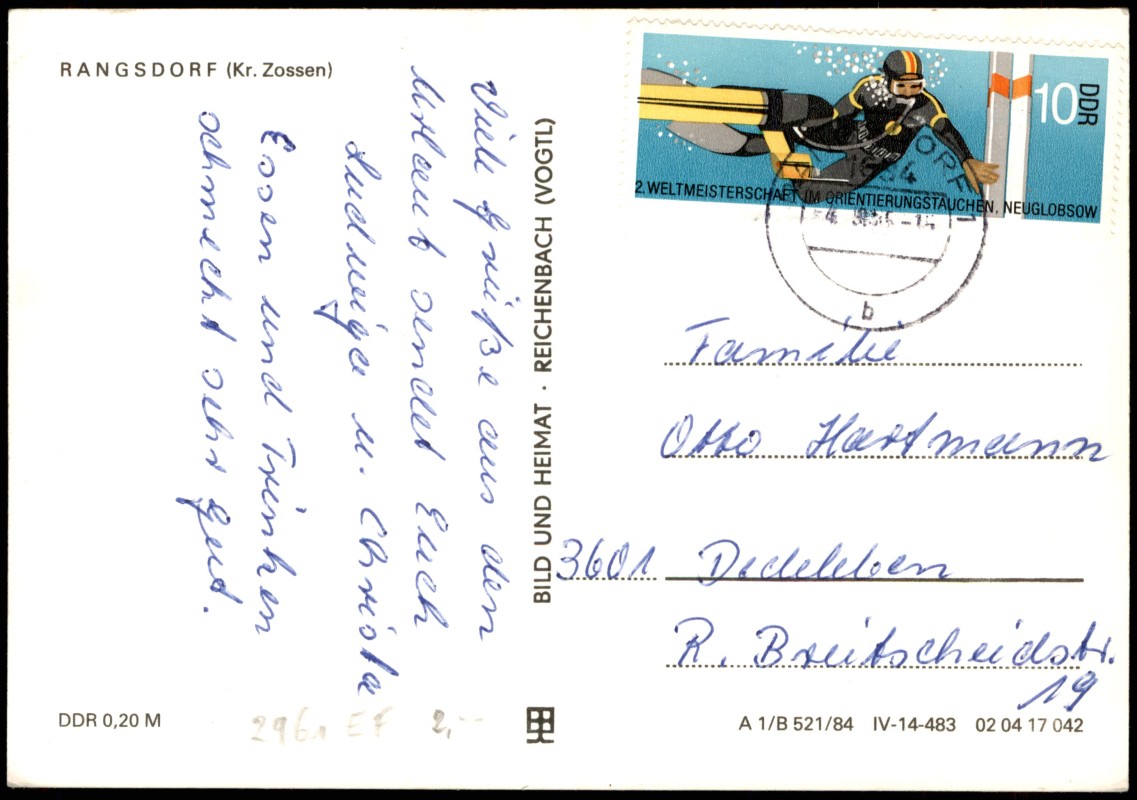 RANGSDORF (Kr. Zossen)
Viele Grüße aus den
Urlaub sendet Euch
Ludwiga u. Christa
Essen und Trinken
schmeckt sehr gut.
BILD UND HEIMAT · REICHENBACH (VOGTL)
10
DDR
2. WELTMEISTERSCHAFT IM ORIENTIERUNGSTAUCHEN, NEUGLOBSOW
DORF 1
1634
b
Familie
Otto Hartmann
3601 Dedeleben
R. Breitscheidstr.
19
DDR 0,20 M
2961 EF 2,-
A 1/B 521/84 IV-14-483 02 04 17 042